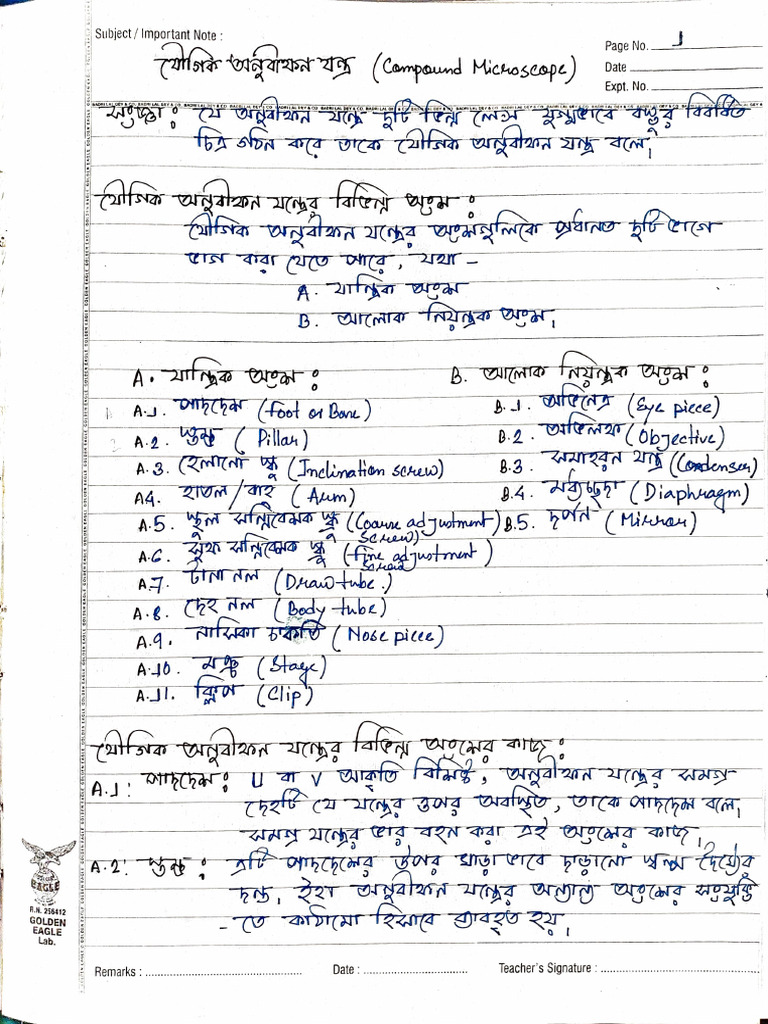 Subject / Important Note :
যৌগিক অনুবীক্ষন যন্ত্র (Compound Microscope)
Page No. 1
Date
Expt. No.
সংজ্ঞা : যে অনুবীক্ষন যন্ত্রে দুটি ভিন্ন লেন্স যুগ্মভাবে বস্তুর বিবর্ধিত
চিত্র গঠন করে তাকে যৌগিক অনুবীক্ষন যন্ত্র বলে।
যৌগিক অনুবীক্ষন যন্ত্রের বিভিন্ন অংশ :
যৌগিক অনুবীক্ষন যন্ত্রের অংশগুলিকে প্রধানত দুটি ভাগে
ভাগ করা যেতে পারে, যথা -
A. যান্ত্রিক অংশ
B. আলোক নিয়ন্ত্রক অংশ।
A. যান্ত্রিক অংশ :
A.1. পাদদেশ (Foot or Base)
A.2. স্তম্ভ (Pillar)
A.3. হেলানো স্ক্রু (Inclination screw)
A.4. হাতল/বাহু (Arm)
A.5. স্থূল সন্নিবেশক স্ক্রু (Coarse adjustment screw)
A.6. সূক্ষ্ম সন্নিবেশক স্ক্রু (fine adjustment screw)
A.7. টানা নল (Draw tube.)
A.8. দেহ নল (Body tube)
A.9. নাসিকা চাকতি (Nose piece)
A.10. মঞ্চ (Stage)
A.11. ক্লিপ (Clip)
B. আলোক নিয়ন্ত্রক অংশ :
B.1. অভিনেত্র (Eye piece)
B.2. অভিলক্ষ (Objective)
B.3. সমাহরন যন্ত্র (Condenser)
B.4. মধ্যচ্ছদা (Diaphragm)
B.5. দর্পন (Mirror)
যৌগিক অনুবীক্ষন যন্ত্রের বিভিন্ন অংশের কাজ :
A.1: পাদদেশ : U বা V আকৃতি বিশিষ্ট, অনুবীক্ষন যন্ত্রের সমগ্র
দেহটি যে যন্ত্রের ওপর অবস্থিত, তাকে পাদদেশ বলে।
সমগ্র যন্ত্রের ভার বহন করা এই অংশের কাজ।
A.2: স্তম্ভ : এটি পাদদেশের উপর খাড়া ভাবে দাড়ানো স্বল্প দৈর্ঘ্যের
দন্ড. ইহা অনুবীক্ষন যন্ত্রের অন্যান্য অংশের সংযুক্তি
- তে কাঠামো হিসাবে ব্যবহৃত হয়।
EAGLE
R.N. 256412
GOLDEN
EAGLE
Lab.
Remarks :
Date :
Teacher's Signature :